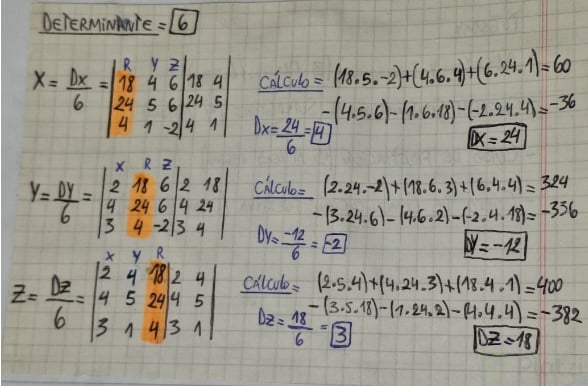 DETERMINANTE = 6
R Y Z
X = Dx/6 = | 18 4 6 | 18 4 |
24 5 6 | 24 5
4 1 -2 | 4 1
CÁLCULO = (18.5.-2)+(4.6.4)+(6.24.1) = 60
-(4.5.6)-(1.6.18)-(-2.24.4) = -36
Dx = 24/6 = 4
DX = 24
X R Z
Y = DY/6 = | 2 18 6 | 2 18 |
4 24 6 | 4 24
3 4 -2 | 3 4
CÁLCULO = (2.24.-2)+(18.6.3)+(6.4.4) = 324
-(3.24.6)-(4.6.2)-(-2.4.18) = -336
DY = -12/6 = -2
DY = -12
X Y R
Z = Dz/6 = | 2 4 18 | 2 4 |
4 5 24 | 4 5
3 1 4 | 3 1
CÁLCULO = (2.5.4)+(4.24.3)+(18.4.1) = 400
-(3.5.18)-(1.24.2)-(4.4.4) = -382
Dz = 18/6 = 3
DZ = 18